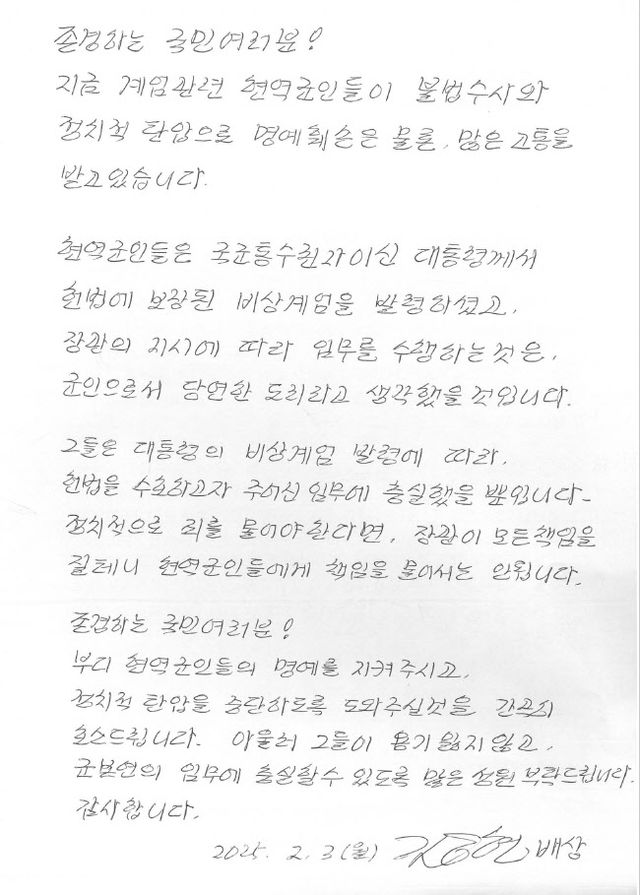 존경하는 국민여러분!
지금 계엄관련 현역군인들이 불법수사와
정치적 탄압으로 명예훼손은 물론, 많은 고통을
받고 있습니다.
현역군인들은 국군통수권자이신 대통령께서
헌법에 보장된 비상계엄을 발령하셨고,
장관의 지시에 따라 임무를 수행하는것은,
군인으로서 당연한 도리라고 생각했을것입니다.
그들은 대통령의 비상계엄 발령에 따라,
헌법을 수호하고자 주어신 임무에 충실했을 뿐입니다.
정치적으로 죄를 물어야 한다면, 장관이 모든책임을
질테니 현역군인들에게 책임을 물어서는 안됩니다.
존경하는 국민여러분!
부디 현역군인들의 명예를 지켜주시고,
정치적 탄압을 중단하도록 도와주실것을 간곡히
호소드립니다. 아울러 그들이 용기 잃지 않고,
군본연의 임무에 충실할수 있도록 많은 성원 부탁드립니다.
감사합니다.
2025. 2. 3(월) 김용현 배상